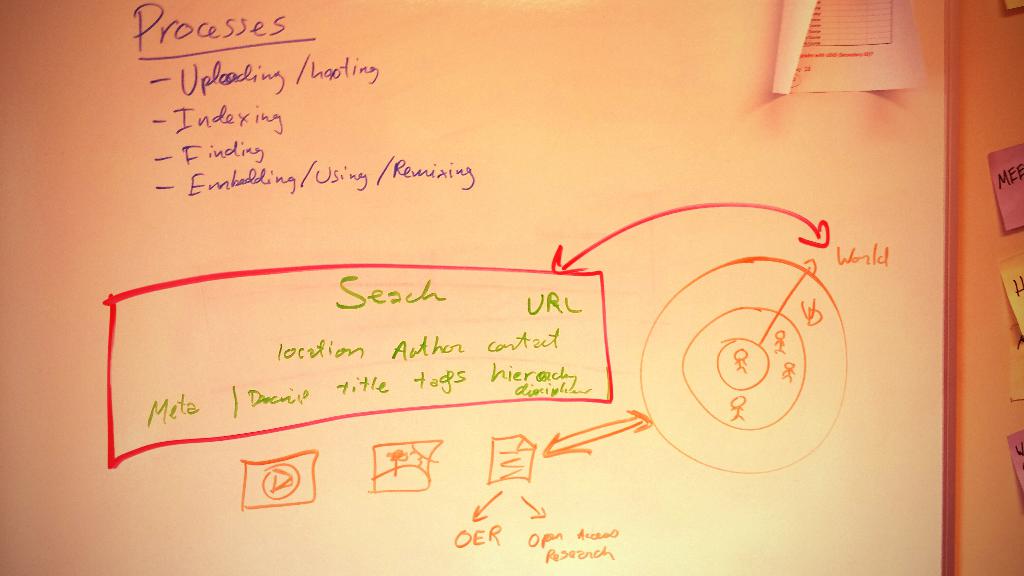 Processes
- Uploading/hosting
- Indexing
- Finding
- Embedding/Using/Remixing
World
Search
URL
location Author contact
Meta | title tags hierarchy
discipline
OER
Open Access
Research
MEE